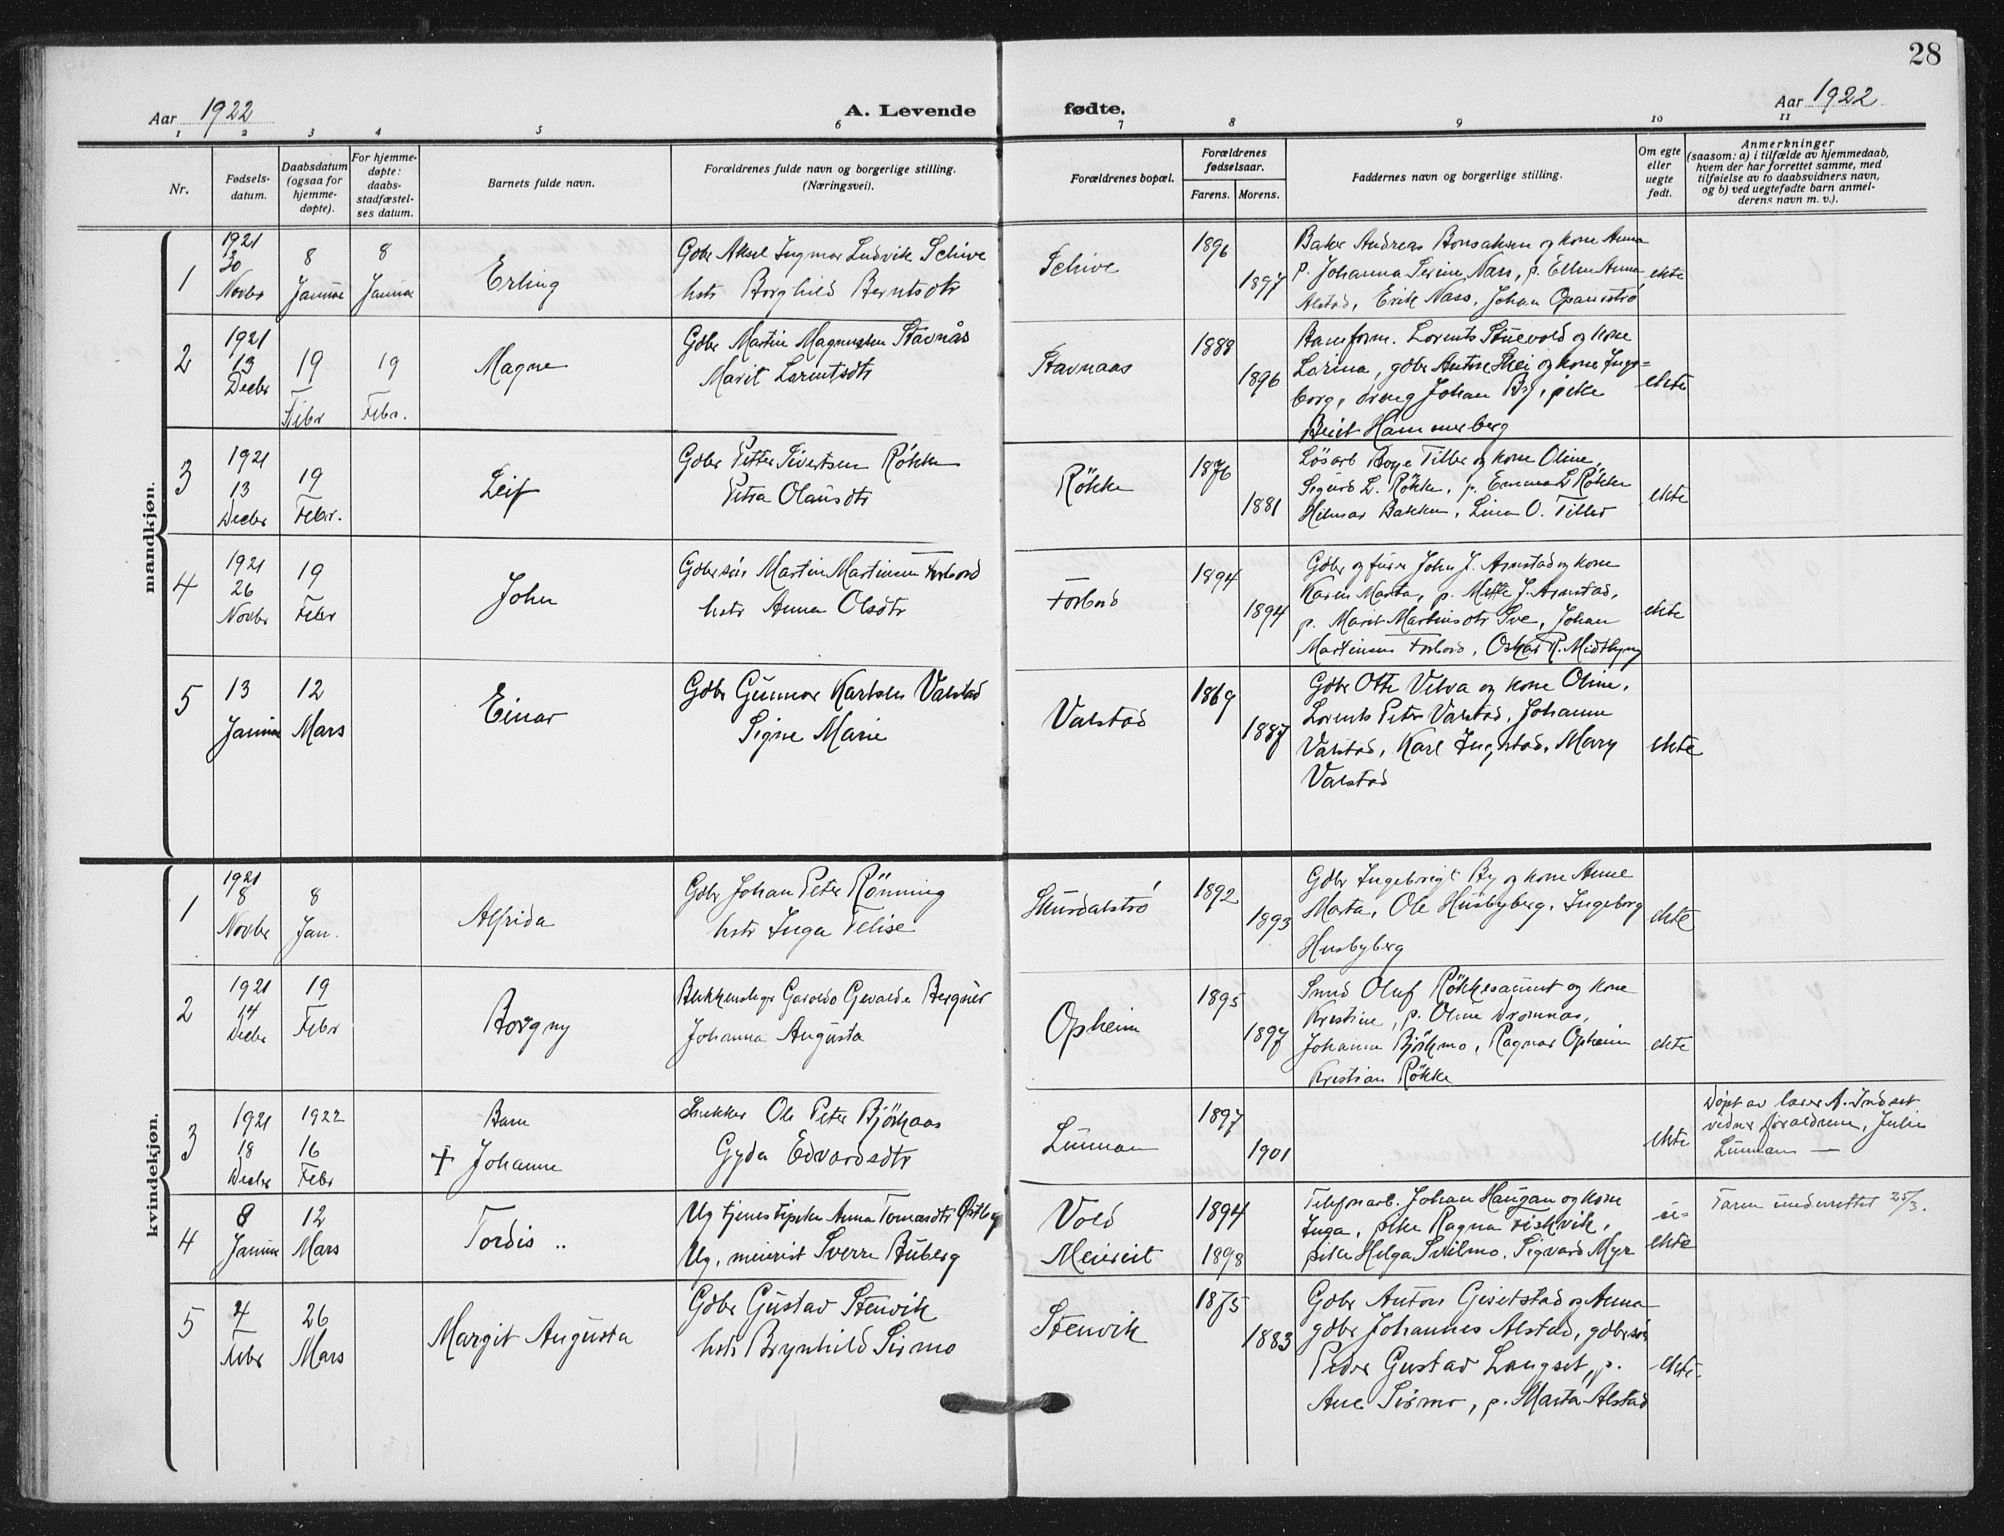 28
Aar 1922
A. Levende
fødte.
Aar 1922
1 2 3 4 5 6 7 8 9 10 11
Nr.
Fødsels-
datum.
Daabsdatum
(ogsaa for
hjemme-
døpte).
For hjemme-
døpte:
daabs-
stadfæstel-
ses datum.
Barnets fulde navn.
Forældrenes fulde navn og borgerlige stilling.
(Næringsvei).
Forældrenes bopæl.
Forældrenes
fødselsaar.
Farens. Morens.
Faddernes navn og borgerlige stilling.
Om egte
eller
uegte
født.
Anmerkninger
(saasom: a) i tilfælde av hjemmedaab,
hvem der har forrettet samme, med
tilføielse av to daabsvidners navn,
og b) ved uegtefødte barn anmel-
derens navn m. v.).
mandkjøn.
1
1921
30
Novbr
8
Januar
8
Januar
Erling
Gbr Aksel Ingmar Ludvik Schive
hstr Borghild Berntsdtr
Schive
1896
1897
Baker Andreas Bonsaksen og kone Anna
p. Johanna Serine Nass, p. Ellen Anna
Alstad, Erik Nass, Johan Opaunströ
ekte
2
1921
13
Decbr
19
Febr
19
Febr.
Magne
Gbr Martin Magnussen Stavnås
Marit Larentsdtr
Stavnaas
1888
1896
Baneform. Lorents Stuevold og kone
Larina, gbr Anton Skei og kone Inge-
borg, dreng Johan By, pike
Berit Hammerberg
ekte
3
1921
13
Decbr
19
Febr.
Leif
Gbr Petter Sivertsen Røkke
Petra Olausdtr
Røkke
1876
1881
Løsarb Roye Tiller og kone Oline,
Sigurd L. Røkke, p. Emma L Røkke
Hilmar Bakken, Lina O. Tiller
ekte
4
1921
26
Novbr
19
Febr
John
Gbrsøn Martin Martinsen Forbord
hstr Anna Olsdtr
Forbord
1894
1894
Gbr og fører John J. Arnstad og kone
Karen Marta, p. Mette J. Arnstad,
p. Marit Martinsdtr Sve, Johan
Martinsen Forbord, Oskar R. Midtbyny
ekte
5
13
Januar
12
Mars
Einar
Gbr Gunnar Karlsen Valstad
Signe Marie
Valstad
1869
1887
Gbr Otte Velva og kone Oline,
Lorents Peter Valstad, Johanne
Valstad, Karl Ingstad, Mary
Valstad
ekte
kvindekjøn.
1
1921
8
Novbr
8
Jan.
Alfrida
Gbr Johan Peter Rönning
hstr Inga Felise
Skurdalströ
1892
1893
Gbr Ingebrigt By og kone Anne
Marta, Ole Husbyberg, Ingeborg
Husbyberg
ekte
2
1921
14
Decbr
19
Febr
Borgny
Blikkenslager Garoldo Gevalde Bergner
Johanna Augusta
Opheim
1895
1897
Smed Oluf Røkkesaunet og kone
Kristine, p. Oline Dromnas,
Johanna Bjørkmo, Ragnar Opheim
Kristian Røkke
ekte
3
1921
18
Decbr
1922
16
Febr
Barn
+ Johanne
Snekker Ole Peter Bjørkaas
Gyda Edvardsdtr
Linman
1897
1901
ekte
Döpt av lærer A. Indset
vidner forældrene, Julie
Linman —
4
8
Januar
12
Mars
Tordis ..
Ug tjenestpike Anna Tomasdtr Østby
Ug. meierist Sverre Buberg
Vold
Meieriet
1894
1898
Telefonarb. Johan Haugan og kone
Inga, pike Ragna Fiskvik,
pike Helga Svilmo, Sigvard Myr
u-
ekte
Faren underrettet 25/3.
5
4
Febr
26
Mars
Margit Augusta
Gbr Gustav Stenvik
hstr Brynhild Sirmo
Stenvik
1875
1883
Gbr Anton Geretstad og Anna
gbr Johannes Alstad, gbrsøn
Peder Gustav Langset, p.
Ane Sirmo, p. Marta Alstad
ekte.